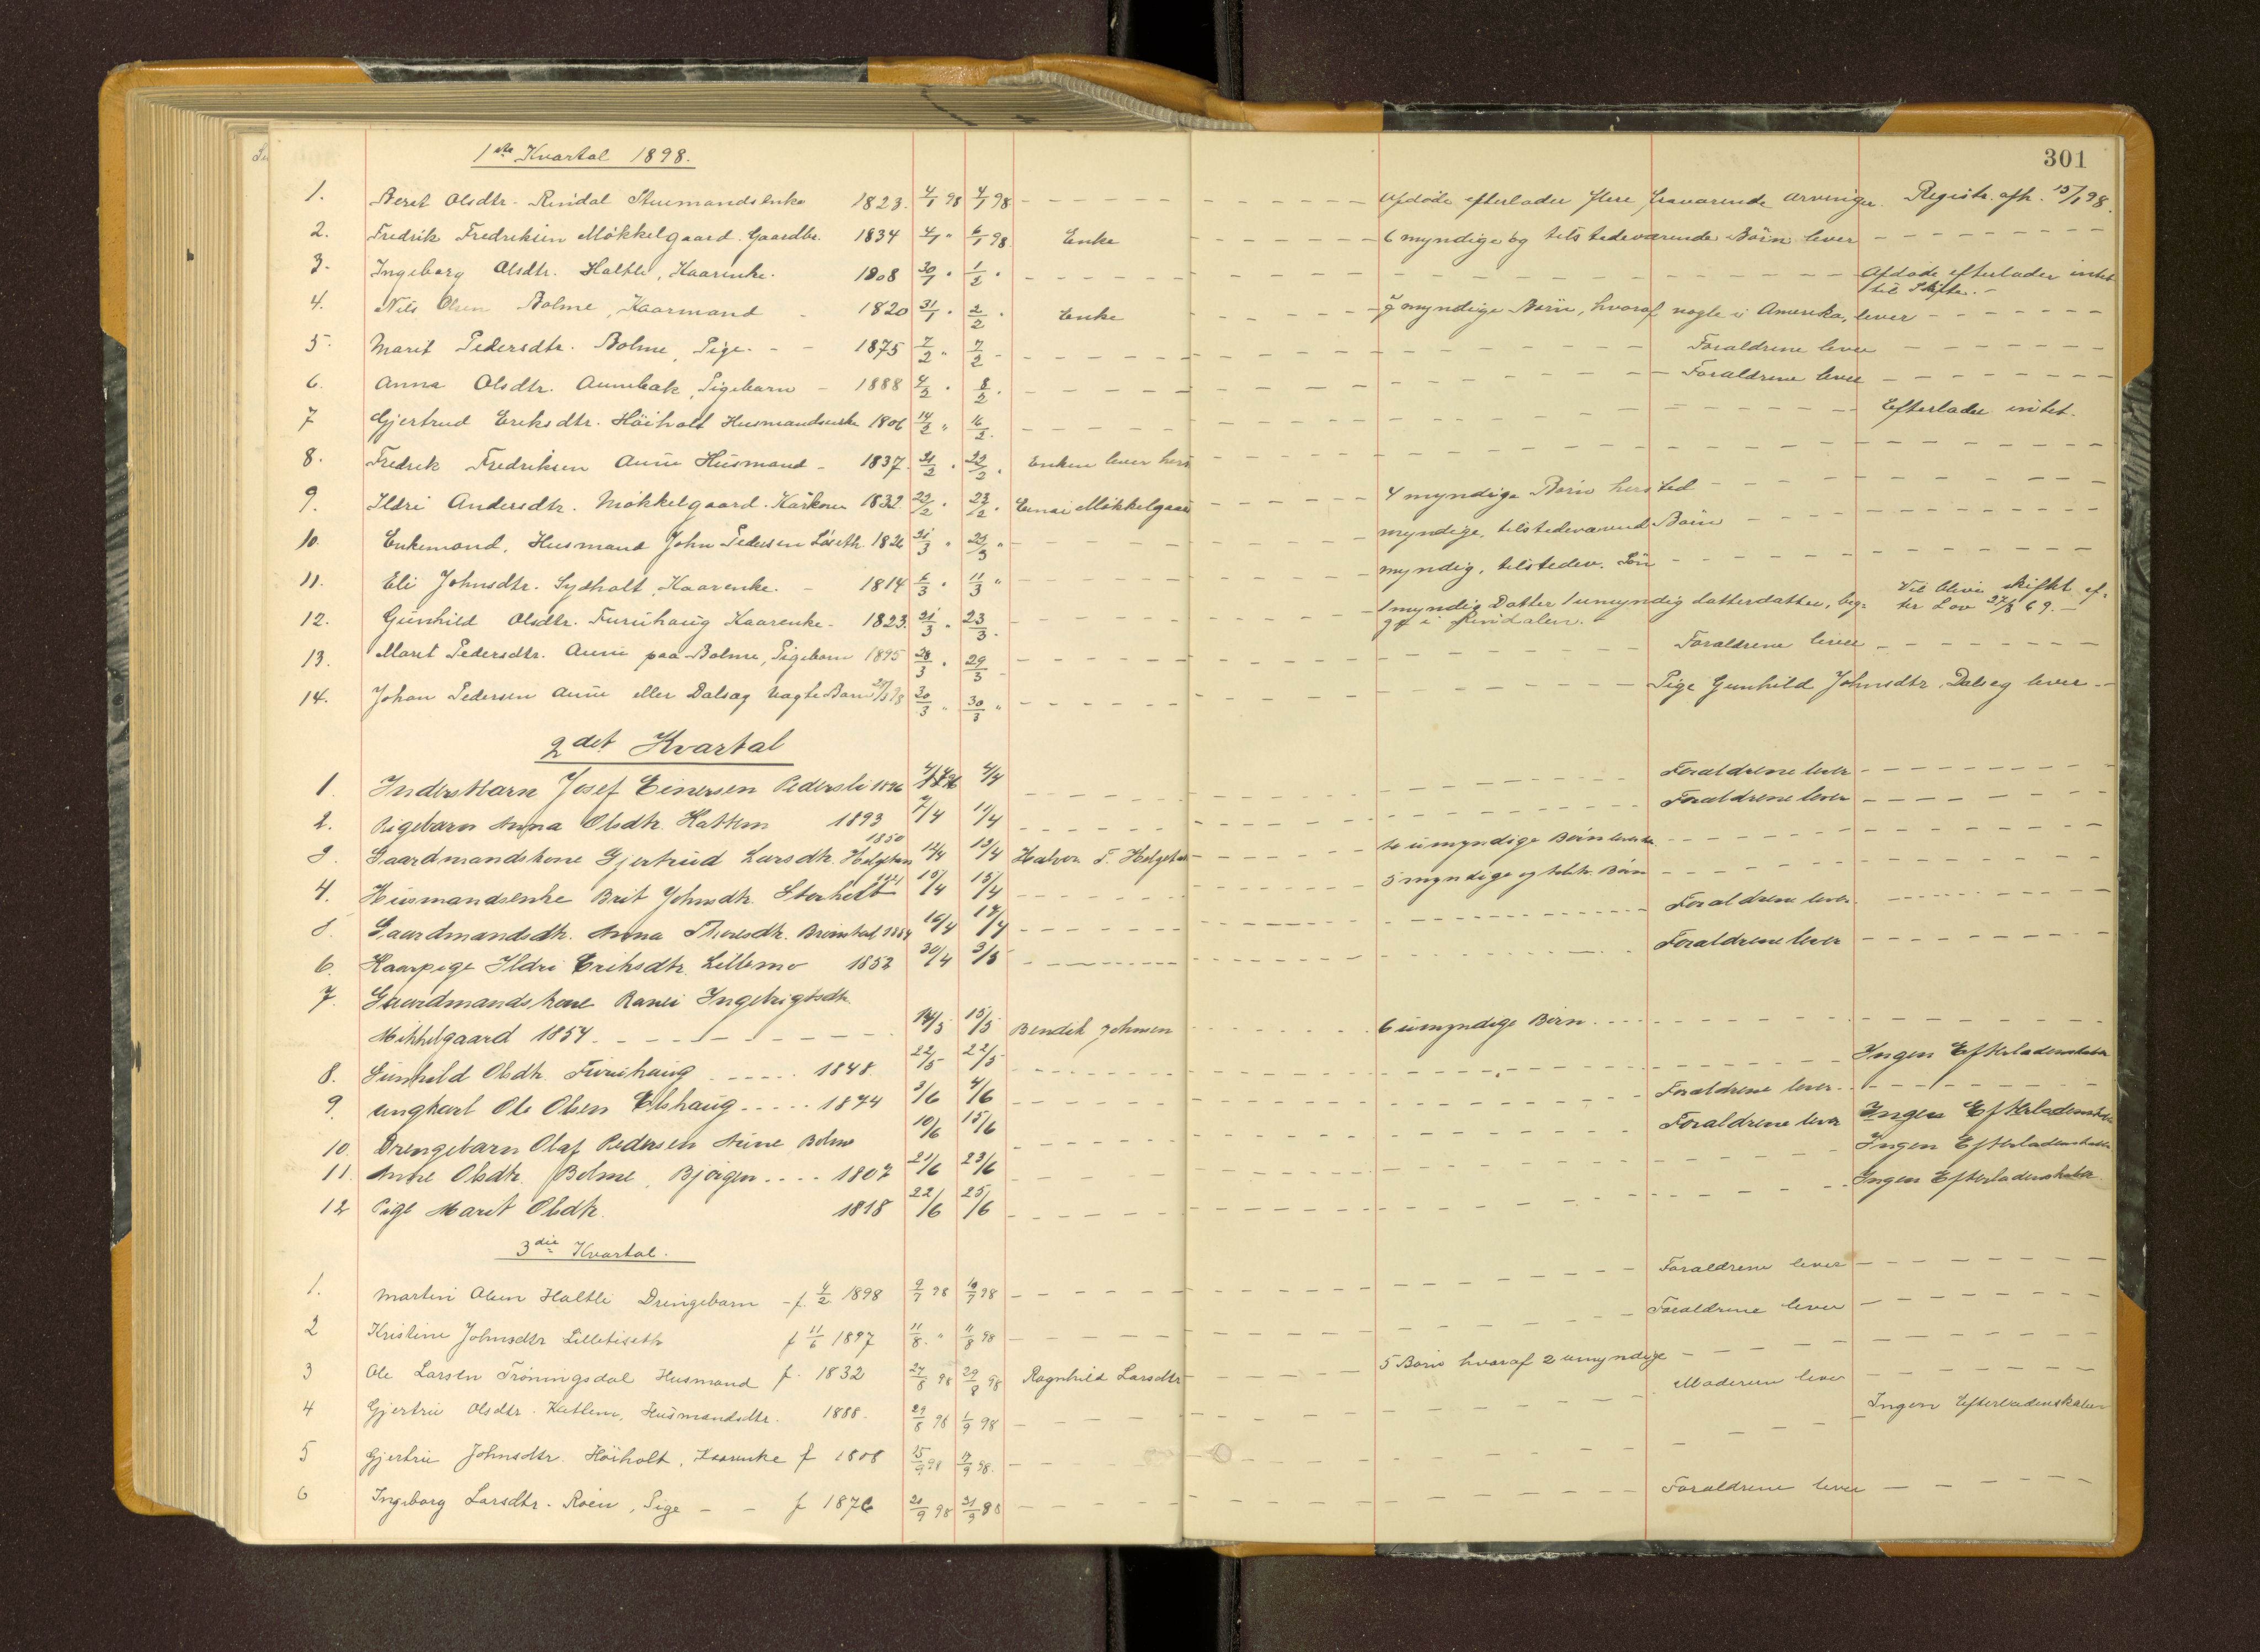 301
1ste Kvartal 1898.
1. Beret Olsdtr. Rindal Stuemandsenke 1823. 4/1 98 4/1 98 Afdøde efterlader flere fraværende arvinger. Registr. afh. 15/1 98.
2. Fredrik Fredriksen Mökkelgaard. Gaardbr. 1834 4/1 " 6/1 98. Enke 6 myndige og tilstedeværende Börn lever
3. Ingeborg Olsdtr. Haltli, Kaarenke. 1808 30/1 " 1/2 " Afdøde efterlader intet
til Skifte.
4. Nils Olsen Bolme, Kaarmand 1820 31/1 " 2/2 " Enke 7 myndige Börn, hvoraf nogle i Amerika, lever
5. Marit Pedersdtr. Bolme, Pige. 1875 7/2 " 7/2 Forældrene lever
6. Anna Olsdtr. Aunebak, Pigebarn 1888 4/2 " 8/2 " Forældrene lever
7 Gjertrud Eriksdtr. Höiholt Husmandsenke 1806 14/2 " 16/2 Efterlader intet.
8. Fredrik Fredriksen Aune Husmand 1837. 21/2 " 22/2 " Enken lever hers
9. Ildri Andersdtr. Mökkelgaard. Kårkone 1832 22/2 " 23/2 " Einar Mökkelgaar 4 myndige Börn hersted
10. Enkemand, Husmand John Pedersen Löseth. 1826 21/3 " 23/3 " myndige, tilstedeværend Börn
11. Eli Johnsdtr. Sydholt, Kaarenke. 1814 6/3 " 11/3 " myndig, tilstedev. Sön
12. Gunhild Olsdtr. Furuhaug Kaarenke. 1823. 21/3 " 23/3 1 myndig Datter 1 umyndig datterdatter, beg- Vil blive skiftet ef-
ge i Rindalen. ter Lov 27/3 69.
13. Maret Pedersdtr. Aune paa Bolme, Pigebarn 1895 28/3 " 29/3 Forældrene lever
14. Johan Pedersen Aune eller Dalsæg uægte Barn 30/3 " 30/3 " Pige Gunhild Johnsdtr. Dalseg lever
2det Kvartal
1. Inderstbarn Josef Einersen Pedersli 1896 4/4 Forældrene lever
2. Pigebarn Anna Olsdtr. Hattem 1893 7/4 11/4 Forældrene lever
3. Gaardmandskone Gjertrud Larsdtr. Helgetun 1850 12/4 13/4 Halvor F. Helgetun umyndige Börn
4. Husmandsenke Brit Johnsdtr. Storholt 15/4 15/4 5 myndige og tilst. Börn
5. Gaardmandsdtr. Anna Thoresdtr. 16/4 17/4 Forældrene lever
6. Kaarpige Ildri Eriksdtr. Lillemo 1852 30/4 3/5 Forældrene lever
7. Gaardmandskone Ranei Ingebrigtsdtr.
Mikkelgaard 1854 14/5 15/5 Bendik Johnsen 6 umyndige Börn
8. Gunhild Olsdtr. Furuhaug 1848. 22/5 22/5 Ingen Efterladenskaber
9. Ungkarl Ole Olsen Elshaug 1874 3/6 4/6 Forældrene lever
10. Drengebarn Olaf Pedersen Aune Bolme 10/6 15/6 Forældrene lever Ingen Efterladenskaber
11. Anne Olsdtr. Bolme, Bjørgen 1807 21/6 23/6 Ingen Efterladenskaber
12 Pige Maret Olsdtr. 1818 22/6 25/6 Ingen Efterladenskaber
3die Kvartal.
1. Martin Olsen Haltli Drengebarn f. 4/2 1898 9/7 98 10/7 98 Forældrene lever
2 Kristine Johnsdtr Lilletiseth f 11/6 1897 11/8 " 11/8 98 Forældrene lever
3 Ole Larsen Tröningsdal Husmand f. 1832 27/8 98 29/8 98 Ragnhild Larsdtr 5 Börn hvoraf 2 umyndige
4 Gjertru Olsdtr. Kattem, Husmandsdtr. 1888. 29/8 98 1/9 98 Moderen lever
5 Gjertru Johnsdtr. Höiholt, Kaarenke f 1808 15/9 98 17/9 98. Ingen Efterladenskaber
6 Ingeborg Larsdtr. Roen, Pige f 1876 21/9 98 21/9 98 Forældrene lever